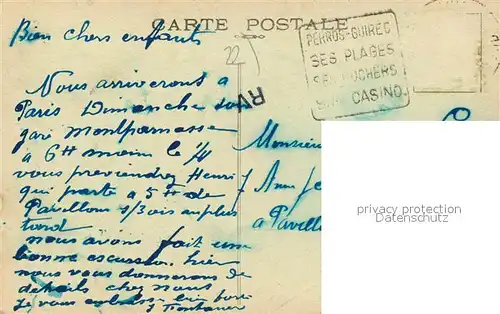 CARTE POSTALE
Bien chers enfants
22
PERROS-GUIREC
SES PLAGES
SES ROCHERS
SON CASINO
RV
Nous arriverons à
Paris Dimanche soir
gare Montparnasse
a 6H moins le 1/4
vous previendrez Henri
qui parte a 5H de
Pavillons s/Bois au plus
tard
nous avons fait une
bonne excursion hier
nous vous donnerons de
details chez nous
Je vous embrasse bien fort
Monsieur
7 Av
a Pavill
privacy protection
Samlerforum.com